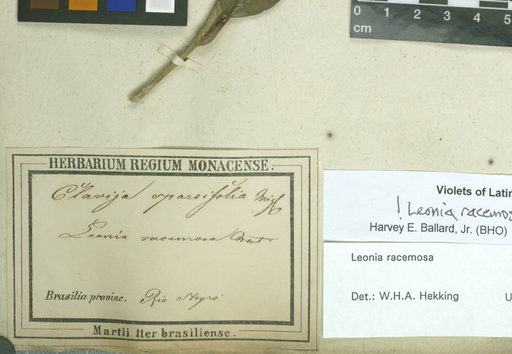 0 1 2 3 4 5
cm
HERBARIUM REGIUM MONACENSE.
Clavija sparsifolia Miq
Leonia racemosa Mart
Brasilia provinc. Rio Negro
Martii Iter brasiliense.
Violets of Latin
! Leonia racemos
Harvey E. Ballard, Jr. (BHO)
Leonia racemosa
Det.: W.H.A. Hekking U